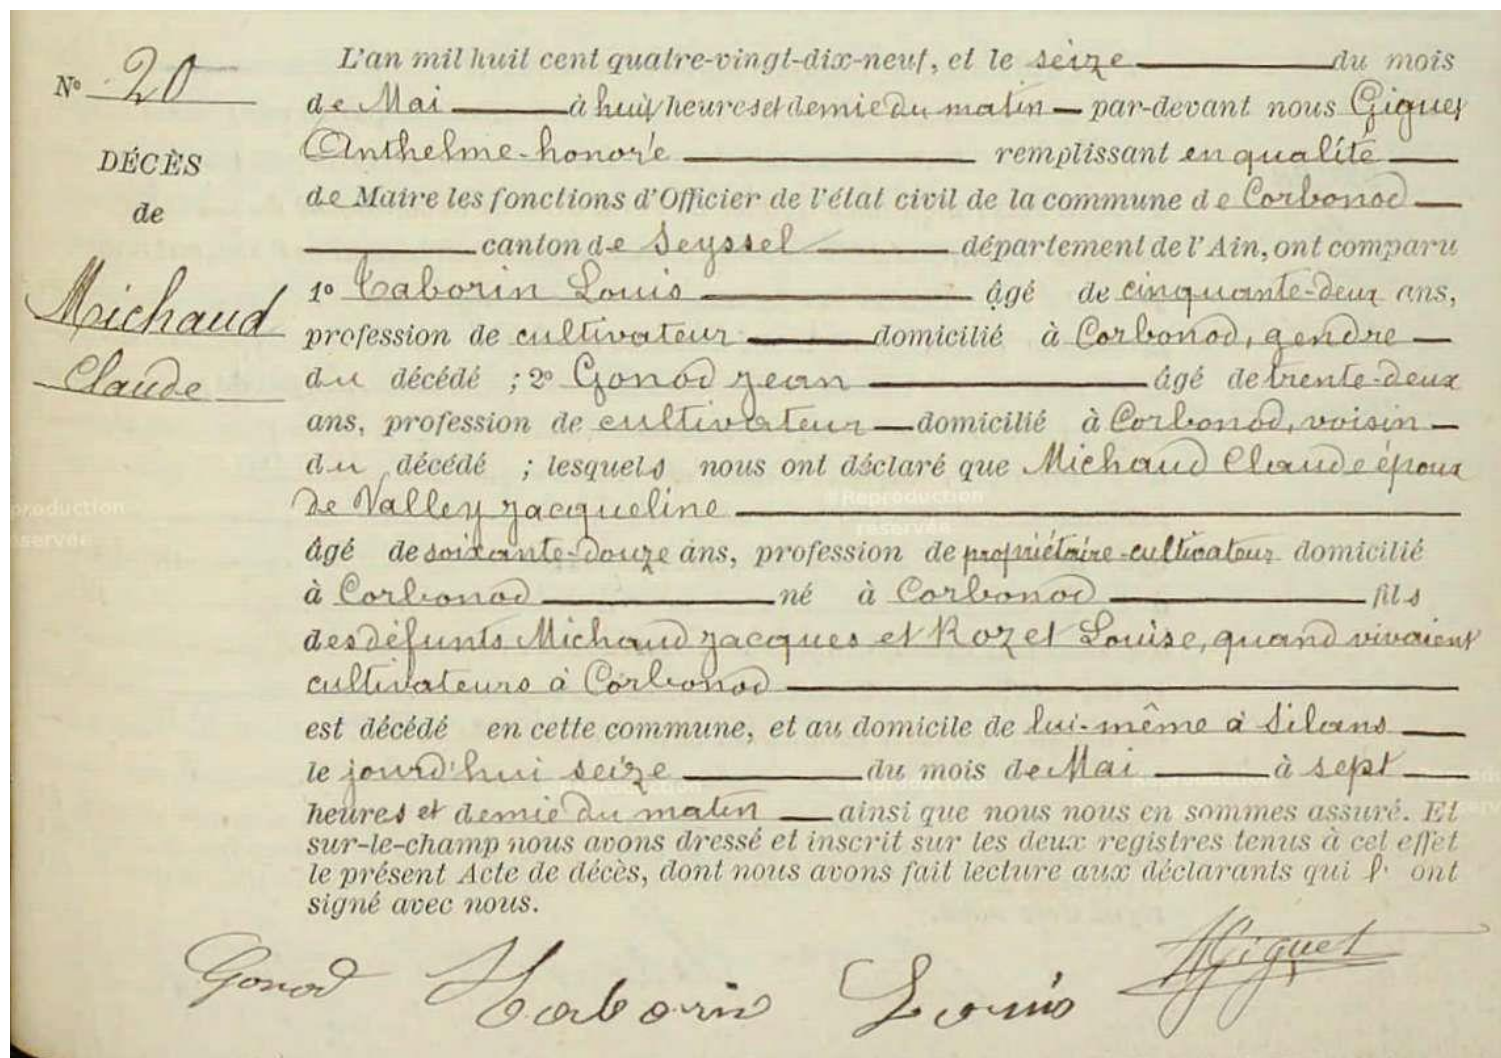 N° 20
DÉCÈS
de
Michaud
Claude
L'an mil huit cent quatre-vingt-dix-neuf, et le seize du mois
de Mai à huit heures et demie du matin par-devant nous Giguet
Anthelme-honoré remplissant en qualité
de Maire les fonctions d'Officier de l'état civil de la commune de Corbonod
canton de Seyssel département de l'Ain, ont comparu
1° Taborin Louis âgé de cinquante-deux ans,
profession de cultivateur domicilié à Corbonod, gendre
du décédé ; 2° Gonod Jean âgé de trente-deux
ans, profession de cultivateur domicilié à Corbonod, voisin
du décédé ; lesquels nous ont déclaré que Michaud Claude époux
de Valley Jacqueline
âgé de soixante-douze ans, profession de propriétaire-cultivateur domicilié
à Corbonod né à Corbonod fils
des défunts Michaud Jacques et Rozet Louise, quand vivaient
cultivateurs à Corbonod
est décédé en cette commune, et au domicile de lui-même à Silans
le jourd'hui seize du mois de Mai à sept
heures et demie du matin ainsi que nous nous en sommes assuré. Et
sur-le-champ nous avons dressé et inscrit sur les deux registres tenus à cet effet
le présent Acte de décès, dont nous avons fait lecture aux déclarants qui l' ont
signé avec nous.
Gonod Taborin Louis HGiguet
Reproduction
réservée